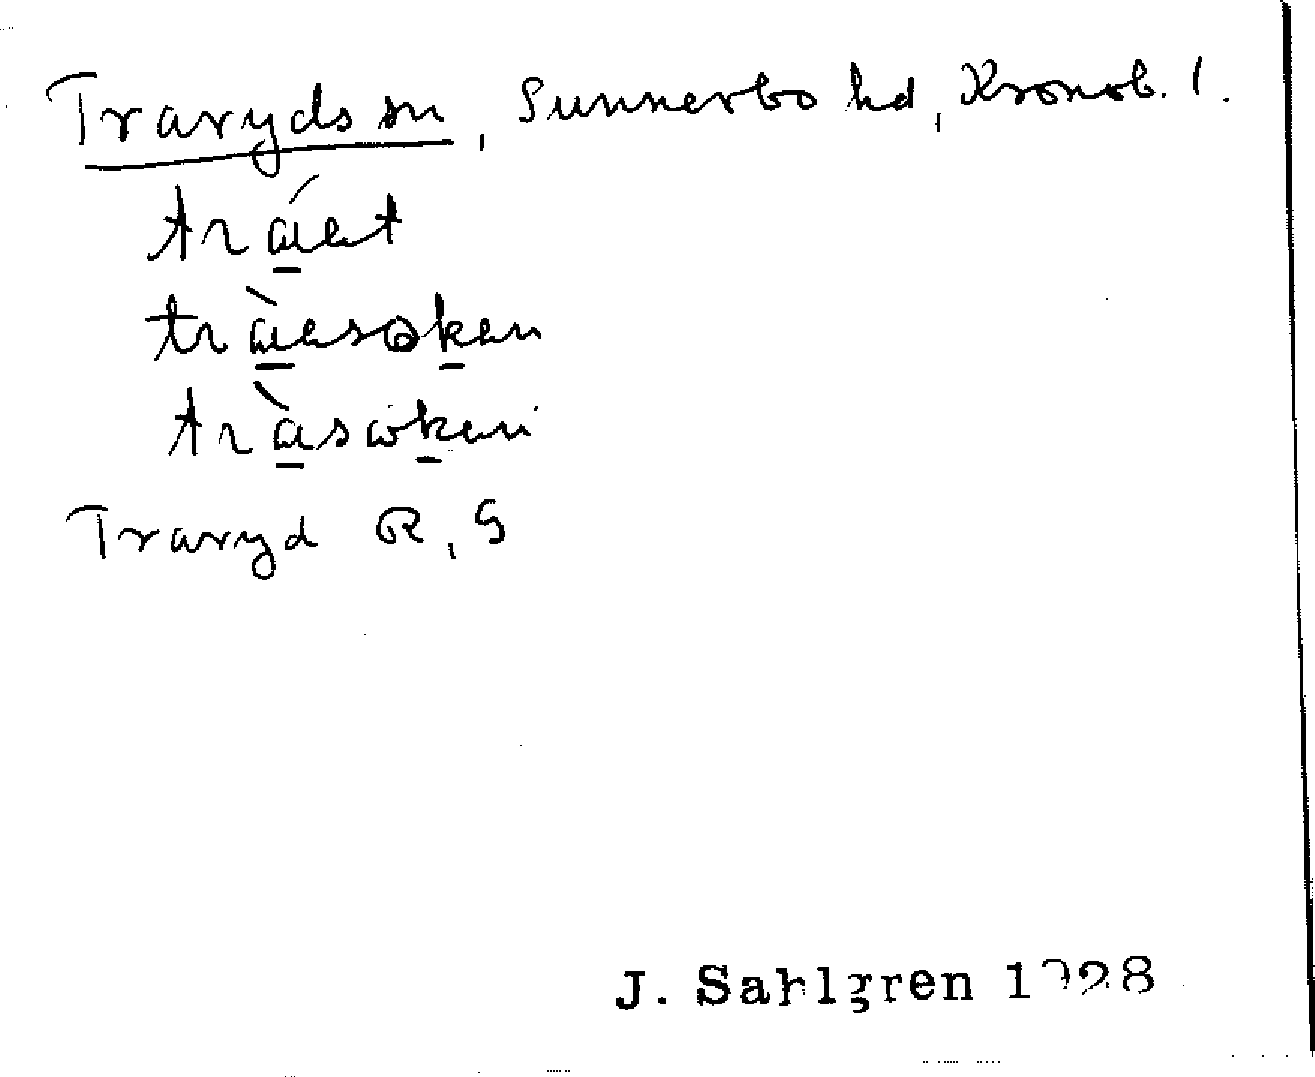 Traryds sn, Sunnerbo hd, Kronob. l.
tráet
tràesoken
tràsoken
Traryd R, G
J. Sahlgren 1928